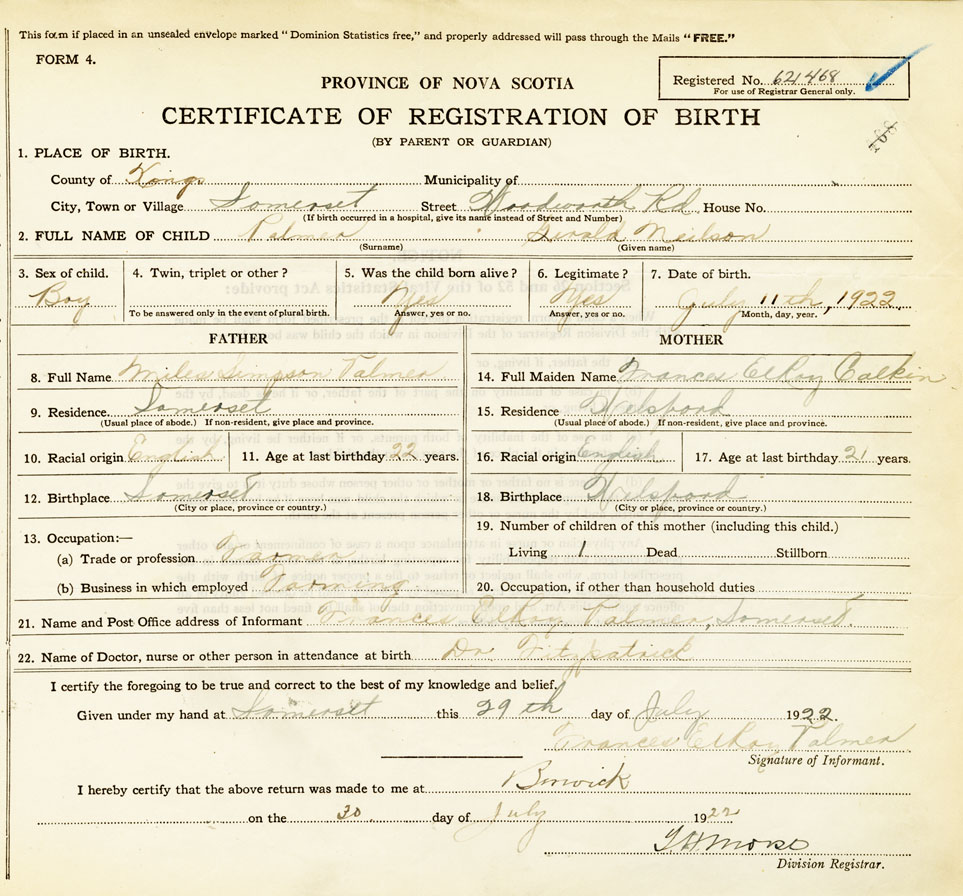 This form if placed in an unsealed envelope marked "Dominion Statistics free," and properly addressed will pass through the Mails "FREE."
FORM 4.
Registered No. 621468
For use of Registrar General only.
PROVINCE OF NOVA SCOTIA
CERTIFICATE OF REGISTRATION OF BIRTH
(BY PARENT OR GUARDIAN)
1. PLACE OF BIRTH.
County of Kings Municipality of
City, Town or Village Somerset Street Woodworth Rd House No.
(If birth occurred in a hospital, give its name instead of Street and Number)
2. FULL NAME OF CHILD Palmer Gerald Neilson
(Surname) (Given name)
3. Sex of child. 4. Twin, triplet or other? 5. Was the child born alive? 6. Legitimate? 7. Date of birth.
Boy Yes Yes July 11th, 1922
To be answered only in the event of plural birth. Answer, yes or no. Answer, yes or no. Month, day, year.
FATHER MOTHER
8. Full Name Miles Simpson Palmer 14. Full Maiden Name Frances ElRoy Calkin
9. Residence. Somerset 15. Residence Welsford
(Usual place of abode.) If non-resident, give place and province. (Usual place of abode.) If non-resident, give place and province.
10. Racial origin English 11. Age at last birthday 22 years. 16. Racial origin English 17. Age at last birthday 21 years.
12. Birthplace Somerset 18. Birthplace Welsford
(City or place, province or country.) (City or place, province or country.)
13. Occupation:— 19. Number of children of this mother (including this child.)
(a) Trade or profession Farmer Living 1 Dead Stillborn
(b) Business in which employed Farming 20. Occupation, if other than household duties
21. Name and Post Office address of Informant Frances ElRoy Palmer, Somerset.
22. Name of Doctor, nurse or other person in attendance at birth Dr Fitzpatrick
I certify the foregoing to be true and correct to the best of my knowledge and belief,
Given under my hand at Somerset this 29th day of July 1922.
Frances ElRoy Palmer
Signature of Informant.
I hereby certify that the above return was made to me at Berwick
on the 30 day of July 1922
Morse
Division Registrar.